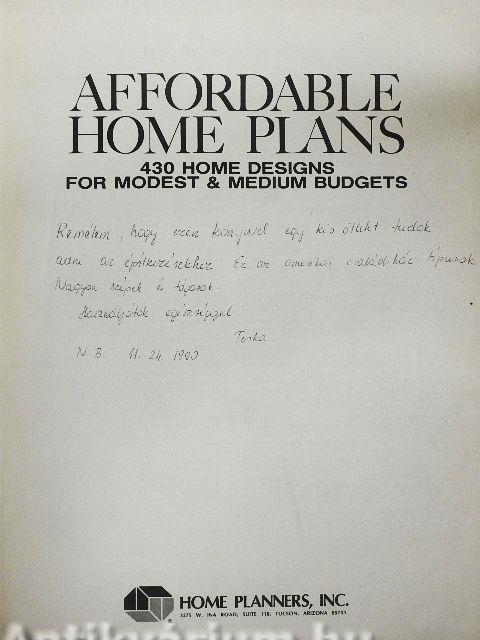 AFFORDABLE
HOME PLANS
430 HOME DESIGNS
FOR MODEST & MEDIUM BUDGETS
Remélem, hogy ezen könyvvel egy kis ötletet tudok
adni az építkezésekhez. Ez az amerikai családi ház típusok
Nagyon szépek és
Használjátok egészséggel
N.B. 11. 24. 1990
HOME PLANNERS, INC.
3275 W. INA ROAD, SUITE 110, TUCSON, ARIZONA 85741
Antikvarium.hu